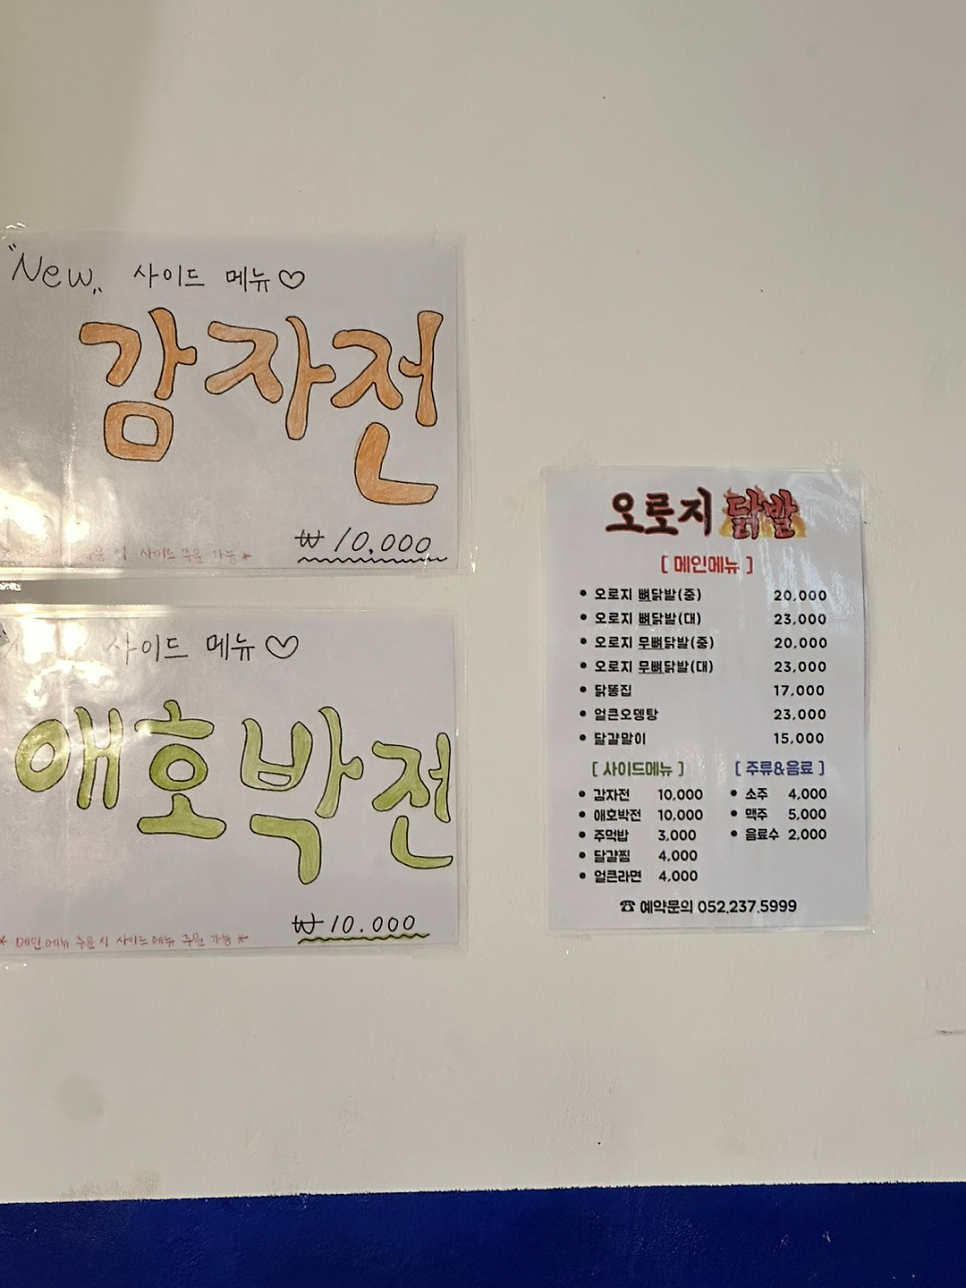 "New" 사이드 메뉴♡
감자전
₩10,000
사이드 주문 가능*
사이드 메뉴♡
애호박전
₩10.000
* 메인메뉴 주문 시 사이드 메뉴 주문 가능 *
오로지 닭발
[ 메인메뉴 ]
• 오로지 뼈닭발(중) 20,000
• 오로지 뼈닭발(대) 23,000
• 오로지 무뼈닭발(중) 20,000
• 오로지 무뼈닭발(대) 23,000
• 닭똥집 17,000
• 얼큰오뎅탕 23,000
• 달걀말이 15,000
[ 사이드메뉴 ]
• 감자전 10,000
• 애호박전 10,000
• 주먹밥 3,000
• 달걀찜 4,000
• 얼큰라면 4,000
[ 주류&음료 ]
• 소주 4,000
• 맥주 5,000
• 음료수 2,000
☎ 예약문의 052.237.5999